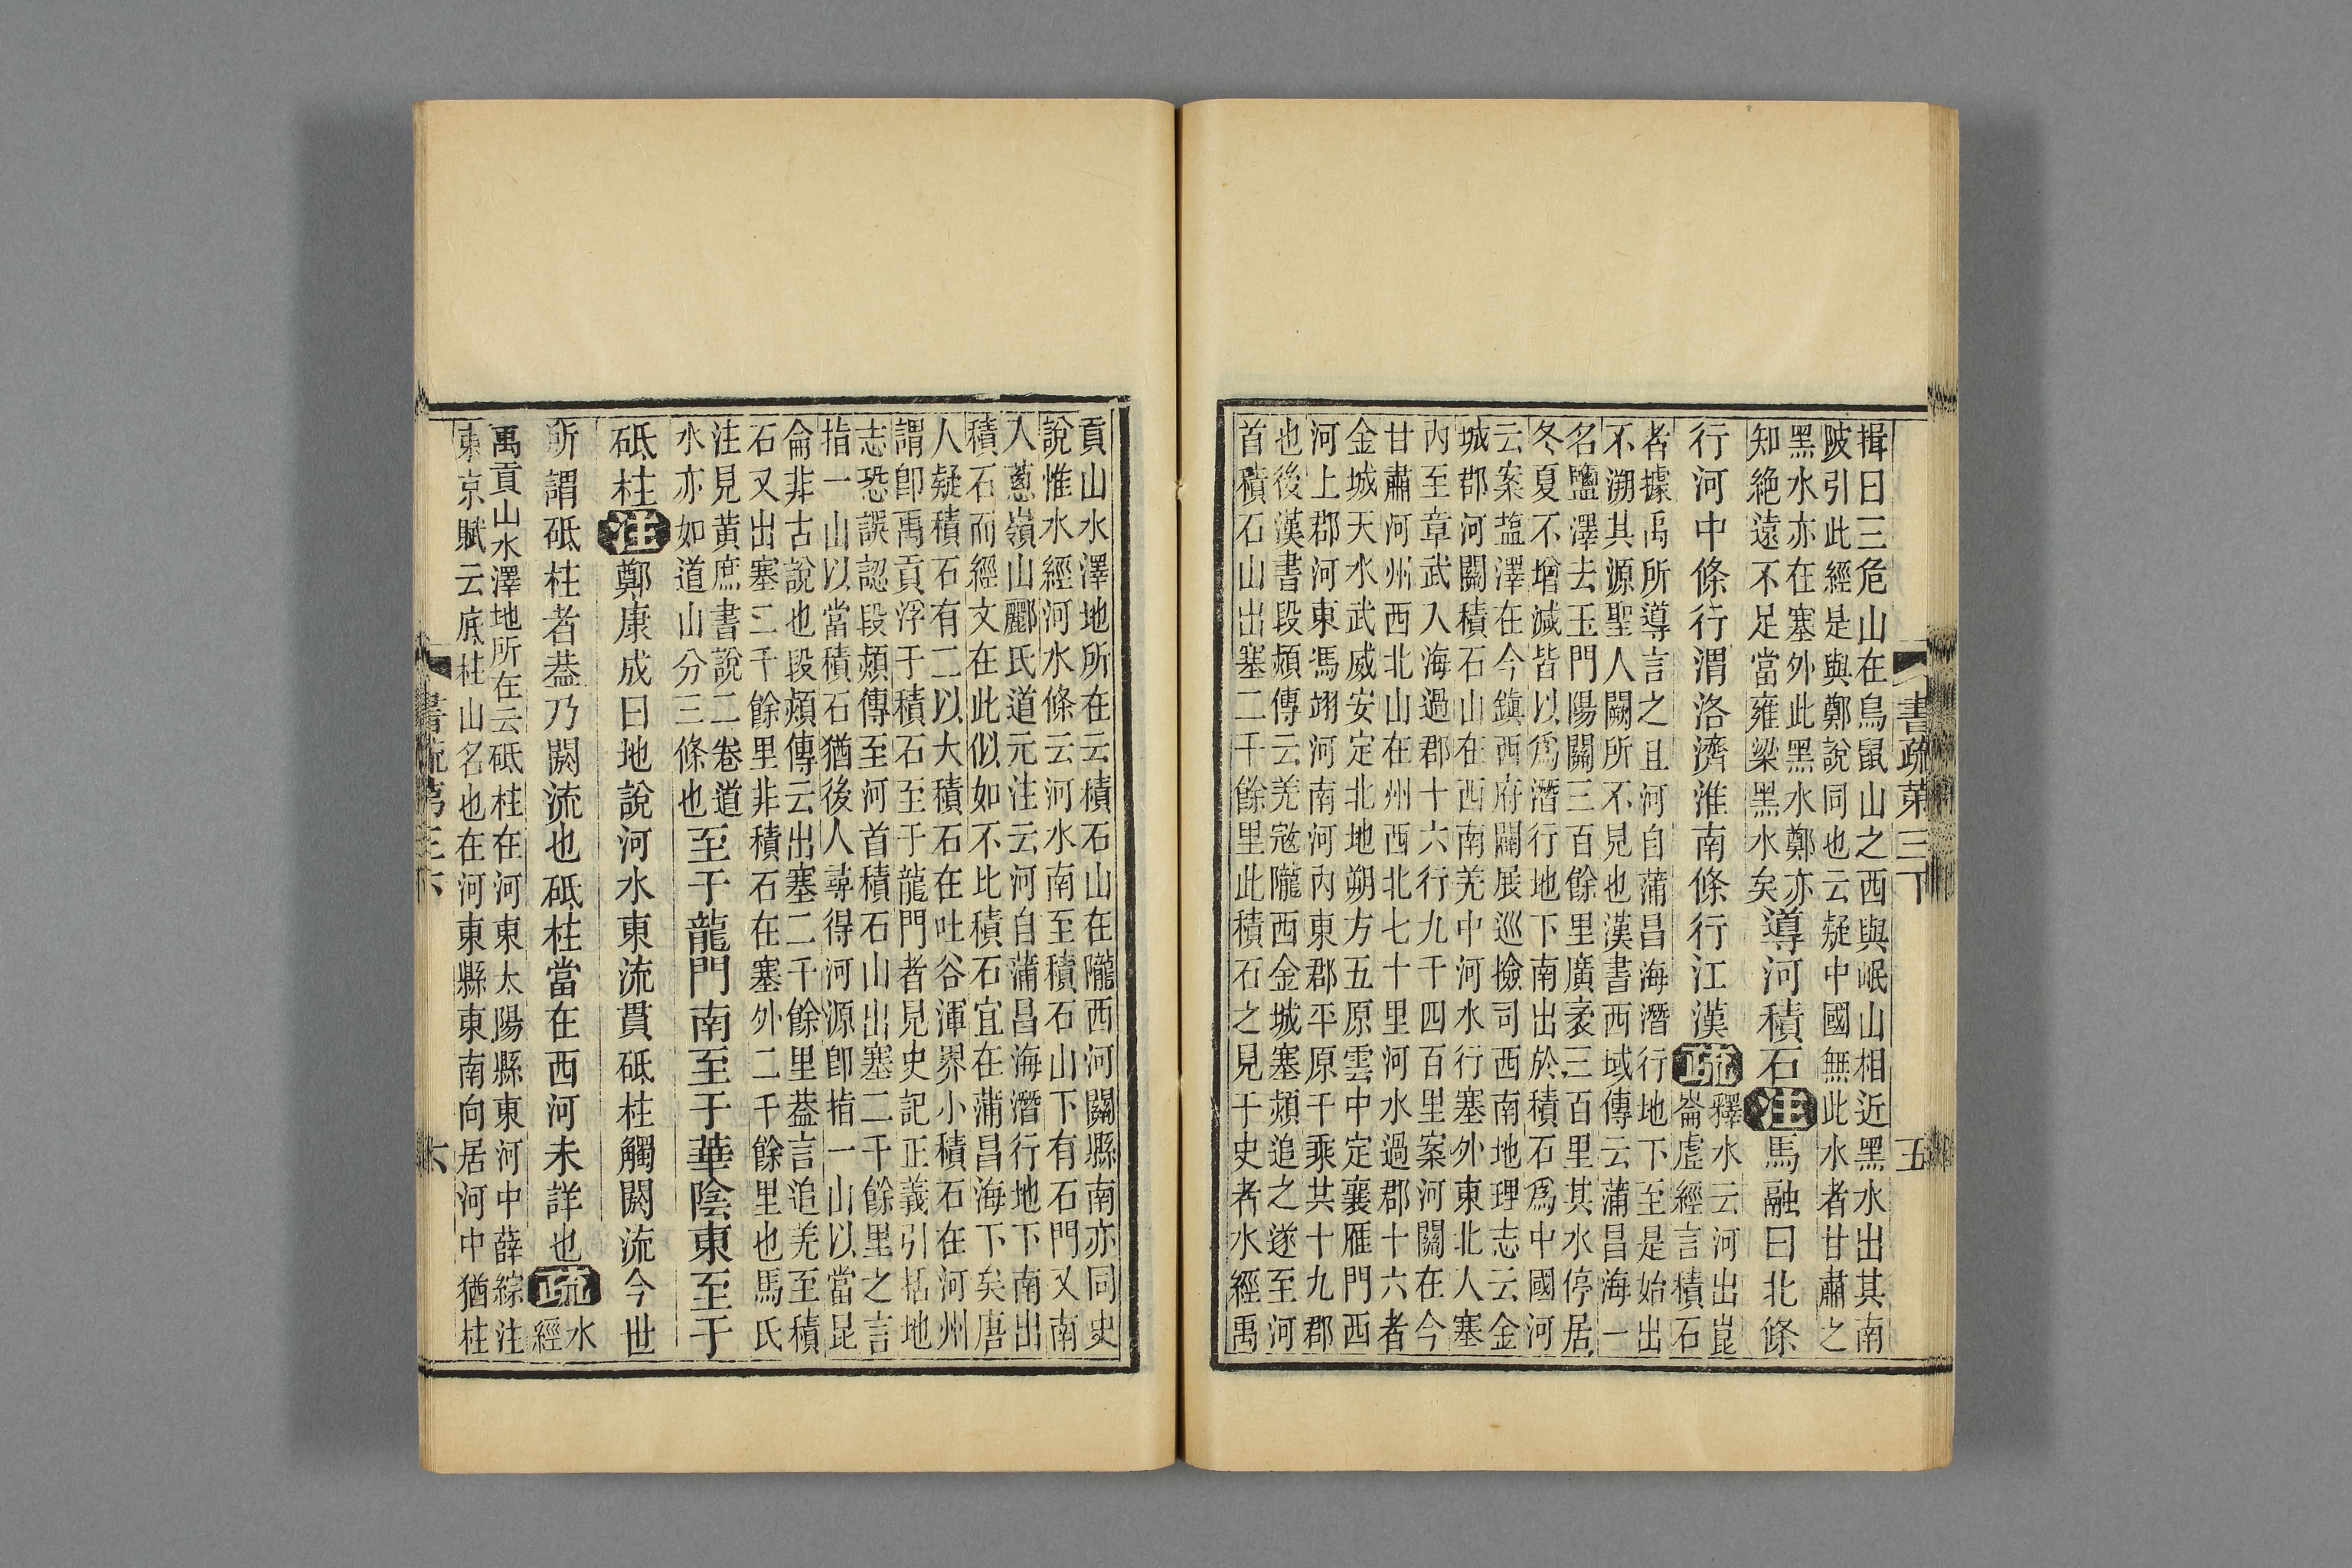 書疏第三下
五
揖曰三危山在鳥鼠山之西與岷山相近黑水出其南
陂引此經是與鄭說同也云疑中國無此水者甘肅之
黑水亦在塞外此黑水鄭亦
知絶遠不足當雍梁黑水矣
導河積石注馬融曰北條
行河中條行渭洛濟淮南條行江漢疏
釋水云河出崑
崙虛經言積石
者據禹所導言之且河自蒲昌海潛行地下至是始出
不溯其源聖人闕所不見也漢書西域傳云蒲昌海一
名鹽澤去玉門陽關三百餘里廣袤三百里其水停居
冬夏不增減皆以爲潛行地下南出於積石爲中國河
云案盐澤在今鎮西府闢展巡撿司西南地理志云金
城郡河關積石山在西南羌中河水行塞外東北人塞
內至章武入海過郡十六行九千四百里案河關在今
甘肅河州西北山在州西北七十里河水過郡十六者
金城天水武威安定北地朔方五原雲中定襄雁門西
河上郡河東馮翊河南河內東郡平原千乘共十九郡
也後漢書段熲傳云羌寇隴西金城塞熲追之遂至河
首積石山出塞二千餘里此積石之見于史者水經禹
貢山水澤地所在云積石山在隴西河關縣南亦同史
說惟水經河水條云河水南至積石山下有石門又南
入蔥嶺山酈氏道元注云河自蒲昌海潛行地下南出
積石而經文在此似如不比積石宜在蒲昌海下矣唐
人疑積石有二以大積石在吐谷渾界小積石在河州
謂卽禹貢浮于積石至于龍門者見史記正義引括地
志恐誤認段熲傳至河首積石山出塞二千餘里之言
指一山以當積石猶後人尋得河源卽指一山以當昆
侖非古說也段熲傳云出塞二千餘里葢言追羌至積
石又出塞二千餘里非積石在塞外二千餘里也馬氏
注見黄庶書說二卷道
水亦如道山分三條也
至于龍門南至于華陰東至于
砥柱注鄭康成曰地說河水東流貫砥柱觸閼流今世
所謂砥柱者葢乃閼流也砥柱當在西河未詳也疏
水
經
禹貢山水澤地所在云砥柱在河東太陽縣東河中薛綜注
東京賦云底柱山名也在河東縣東南向居河中猶柱
書疏第三下
六